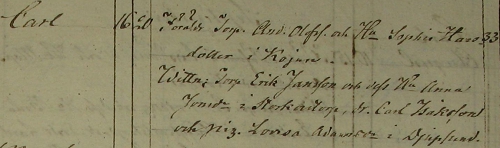 Carl 16 20 Föräldr Torp. And. Olofs. och Hu Sophia Haro 33
dotter i Kojure.
Wittn: Torp Erik Jansson och dess Hu Anna
Jonsdr i Storkärstorp, dr. Carl Isaksson
och pig. Lovisa Adamsdr i Djupsund.